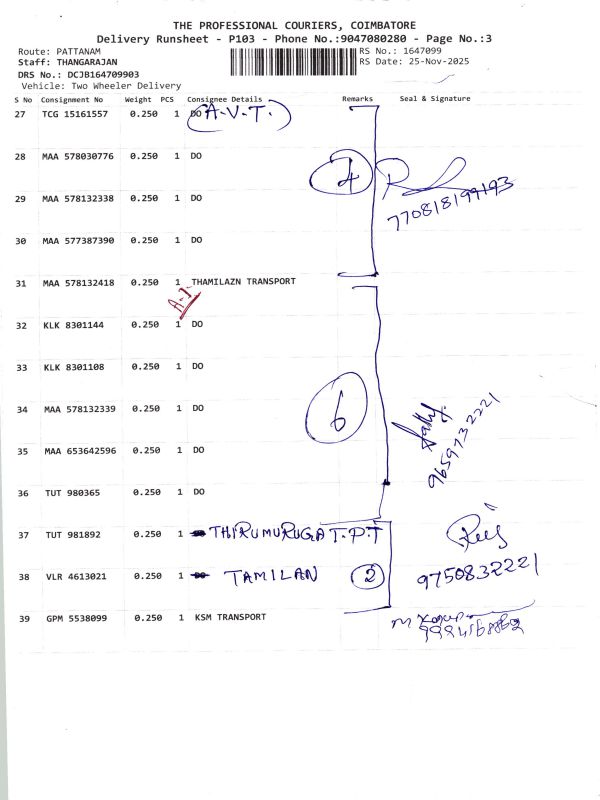 THE PROFESSIONAL COURIERS, COIMBATORE
Delivery Runsheet - P103 - Phone No.:9047080280 - Page No.:3
Route: PATTANAM
RS No.: 1647099
Staff: THANGARAJAN
RS Date: 25-Nov-2025
DRS No.: DCJB164709903
Vehicle: Two Wheeler Delivery
S No Consignment No Weight PCS Consignee Details Remarks Seal & Signature
27 TCG 15161557 0.250 1 DO A.V.T.
28 MAA 578030776 0.250 1 DO
4
29 MAA 578132338 0.250 1 DO
30 MAA 577387390 0.250 1 DO
31 MAA 578132418 0.250 1 THAMILAZN TRANSPORT
32 KLK 8301144 0.250 1 DO
33 KLK 8301108 0.250 1 DO
34 MAA 578132339 0.250 1 DO
6
9659732221
35 MAA 653642596 0.250 1 DO
36 TUT 980365 0.250 1 DO
37 TUT 981892 0.250 1 THIRUMURUGA T.P.T
38 VLR 4613021 0.250 1 DO TAMILAN 2 9750832221
39 GPM 5538099 0.250 1 KSM TRANSPORT